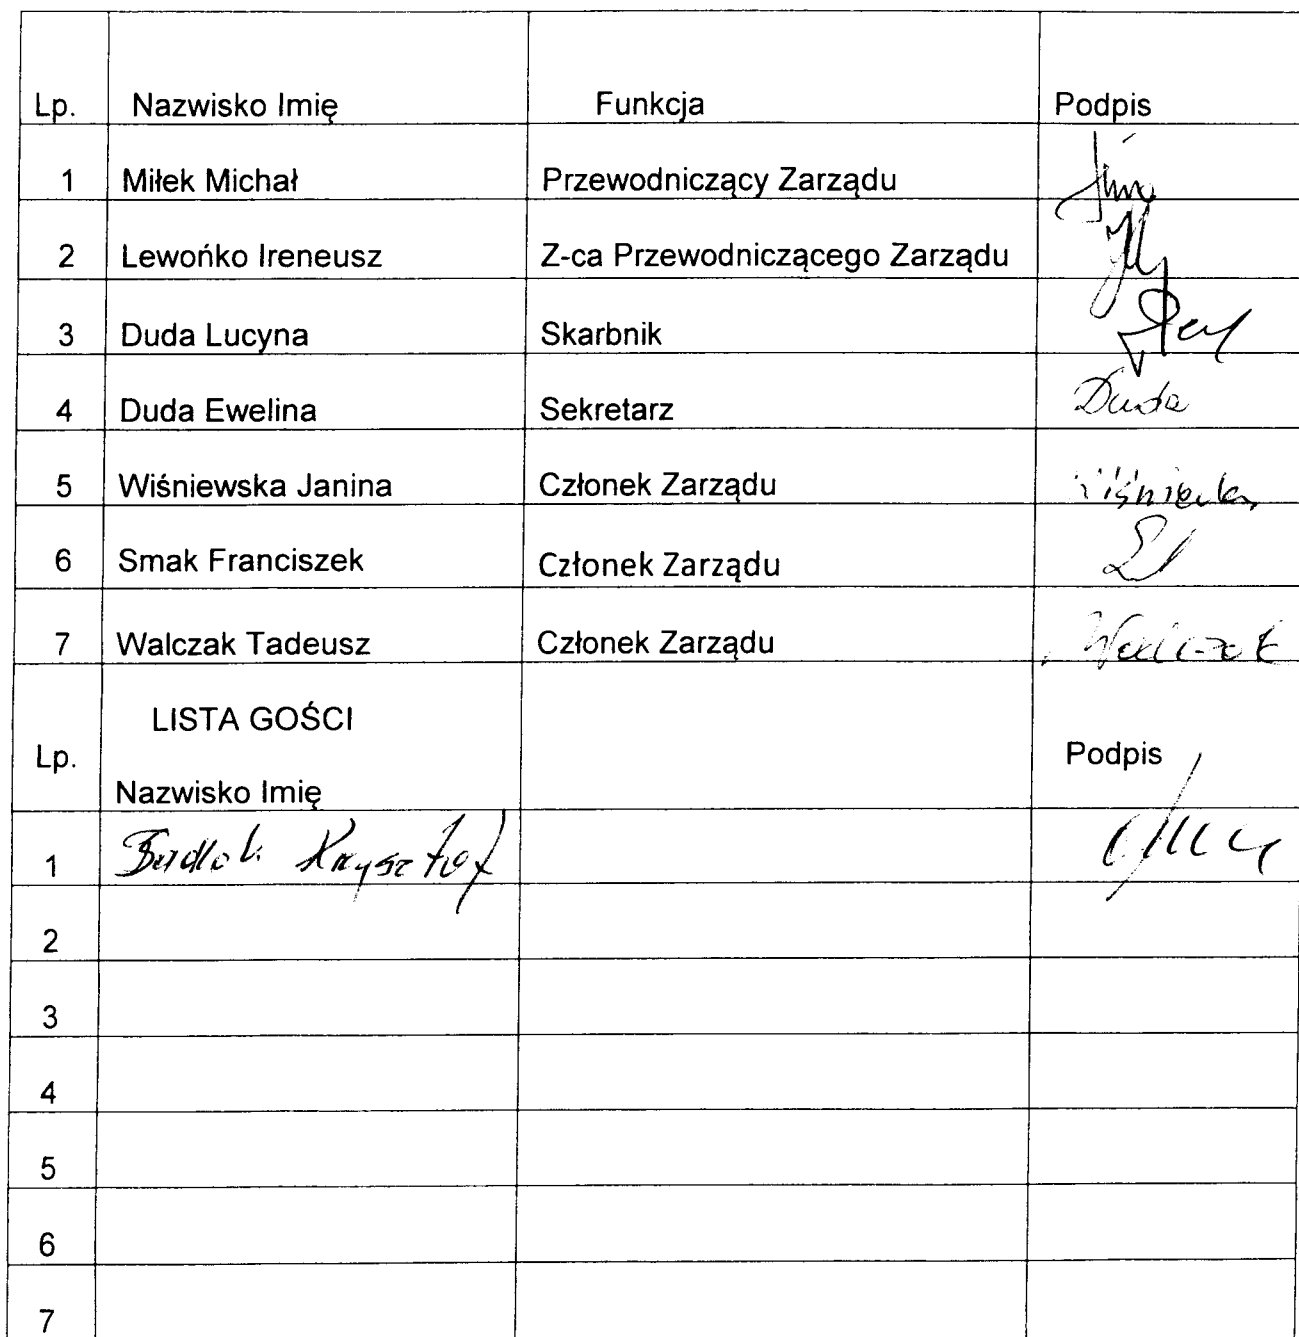 Lp. Nazwisko Imię Funkcja Podpis
1 Miłek Michał Przewodniczący Zarządu
2 Lewońko Ireneusz Z-ca Przewodniczącego Zarządu
3 Duda Lucyna Skarbnik
4 Duda Ewelina Sekretarz Duda
5 Wiśniewska Janina Członek Zarządu
6 Smak Franciszek Członek Zarządu
7 Walczak Tadeusz Członek Zarządu Walczak
LISTA GOŚCI
Lp. Podpis
Nazwisko Imię
1 Krysztof
2
3
4
5
6
7